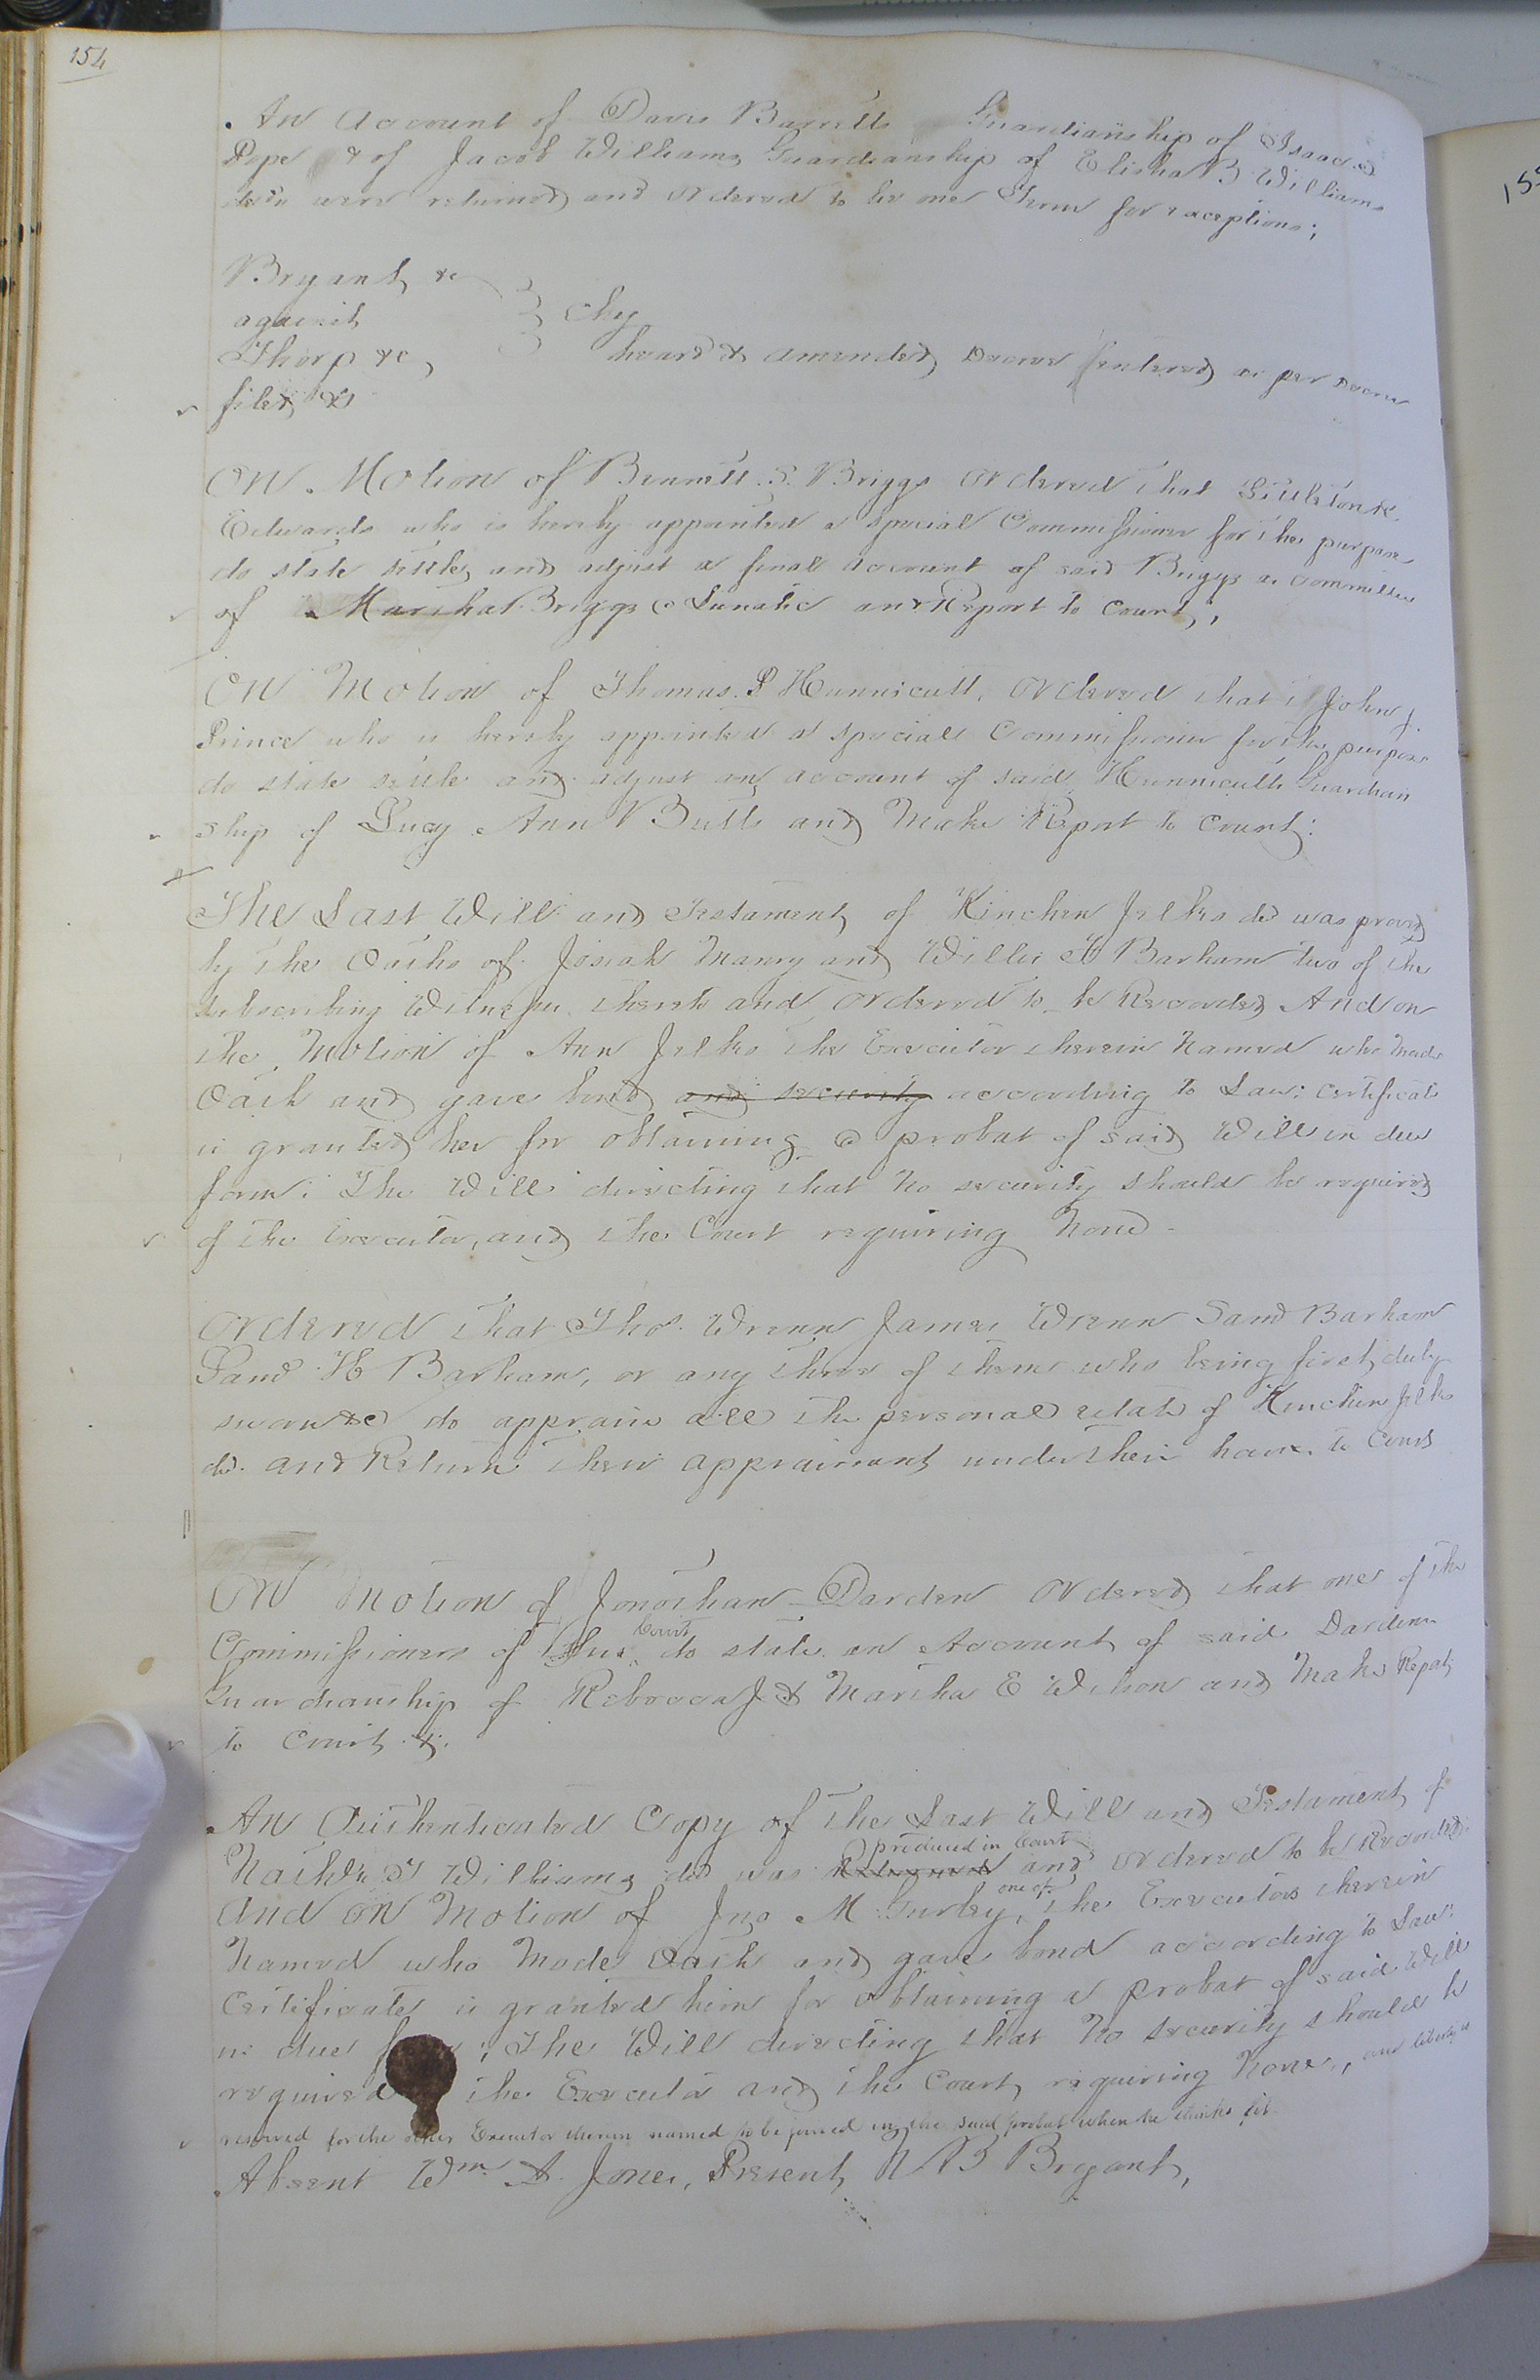 154
An account of Davis Barretts Guardianship of Isaac
Pope & of Jacob Williams Guardianship of Elisha B Williams
were returned and ordered to lie one Term for exceptions;
Bryant &c
against
Chy
Thorp &c,
heard & amended Decree entered as per Decree
filed &
On Motion of Bennett S. Briggs Ordered that Littleton R.
Edwards who is hereby appointed a special Commissioner for the purpose
do state settle and adjust a final account of said Briggs as Committee
of Marthat Briggs a Lunatic and Report to Court;
On Motion of Thomas P Hunnicutt, Ordered that John J.
Prince who is hereby appointed a special Commissioner for the purpose
do state settle and adjust an account of said Hunnicutts Guardian
ship of Lucy Ann Butts and Make Report to Court:
The Last Will and Testament of Kinchen Jelks dcd was proved
by the Oaths of Josiah Manry and Willis H Barham two of the
subscribing Witnesses thereto and Ordered to be Recorded And on
the Motion of Ann Jelks the Executor therein Named who Made
Oath and gave bond and security according to Law: certificate
is granted her for obtaining a probat of said Will in due
form: The Will directing that no security should be required
of the Executor, and the Court requiring None -
Ordered that Thos. Wrenn James Wrenn Saml Barham
Saml H Barham, or any three of them who being first duly
sworn &c do appraise all the personal estate of Kinchen Jelks
dcd. and Return their appraisement under their hands to Court
On Motion of Jonathan Darden Ordered that one of the
Court
Commissioners of this do state an Account of said Dardens
Guardianship of Rebecca J & Martha E Wilson and Make Report
to Court &.
An Authenticated Copy of the Last Will and Testament of
produced in Court
Nathl. T Williams dcd was Returned and ordered to be Recorded;
one of
And on Motion of Jno M Gurley, the Executors therein
Named who Made Oath and gave bond according to Law:
Certificate is granted him for obtaining a probat of said Will
in due ; The Will directing that No security should be
required the Executor and the Court requiring None, and liberty is
reserved for the other Executor therein named to be joined in the said probat when he thinks fit
Absent Wm. A. Jones, Present, B Bryant,
155